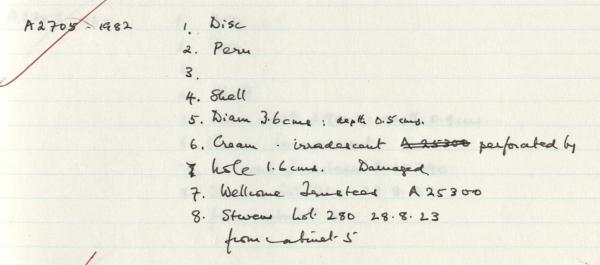 A2705-1982 1. Disc
2. Peru
3.
4. Shell
5. Diam 3.6cms : depth 0.5cms.
6. Cream . irradescent A 25300 perforated by
hole 1.6cms. Damaged
7. Wellcome Trustees A 25300
8. Stevens Lot. 280 28.8.23
from cabinet 5